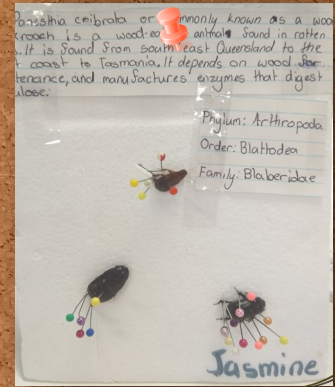 Panesthia cribrata or mmonly known as a woo
kroach is a wood-ea animals found in rotten
s. It is found from south east Queensland to the
t coast to Tasmania. It depends on wood for
tenance, and manufactures enzymes that digest
ulose.
Phylum: Arthropoda
Order: Blattodea
Family: Blaberidae
Jasmine